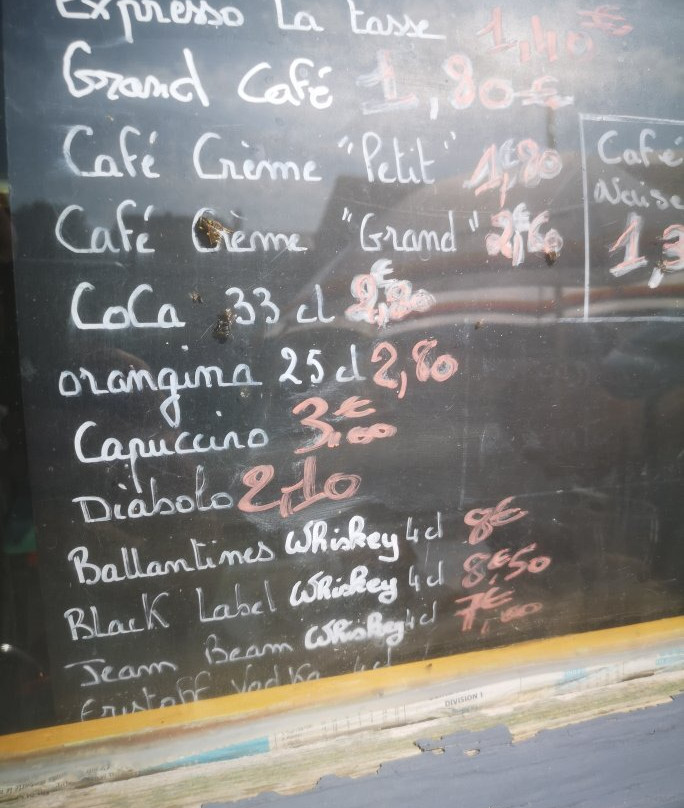 Expresso La tasse 1,40€
Grand Café 1,80€
Café Crème "Petit" 1,€80
Café Crème "Grand" 2,€60
Café
Noise
1,3
CoCa 33 cl 2,€80
orangina 25 cl 2,80
Capuccino 3,€00
Diabolo 2,10
Ballantines Whiskey 4 cl 8€
Black Label Whiskey 4 cl 8,€50
Jeam Beam Whiskey 4 cl 7,€00
Eristoff Vodka 4 cl
DIVISION 1